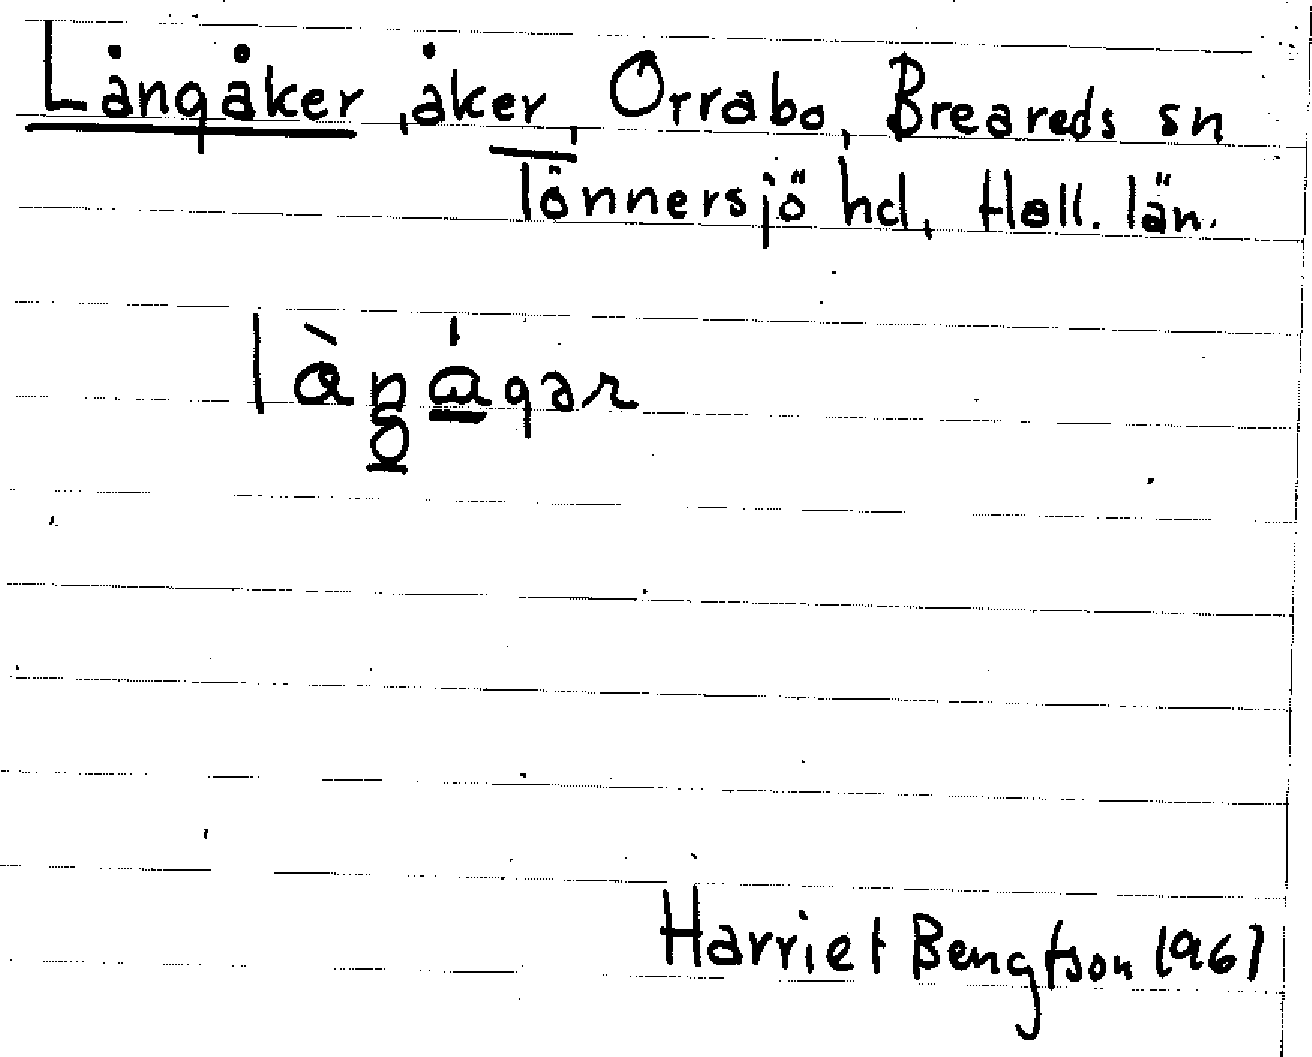 Långåker, åker, Orrabo, Breareds sn
Tönnersjö hd, Hall. län.
Harriet Bengtson 1967